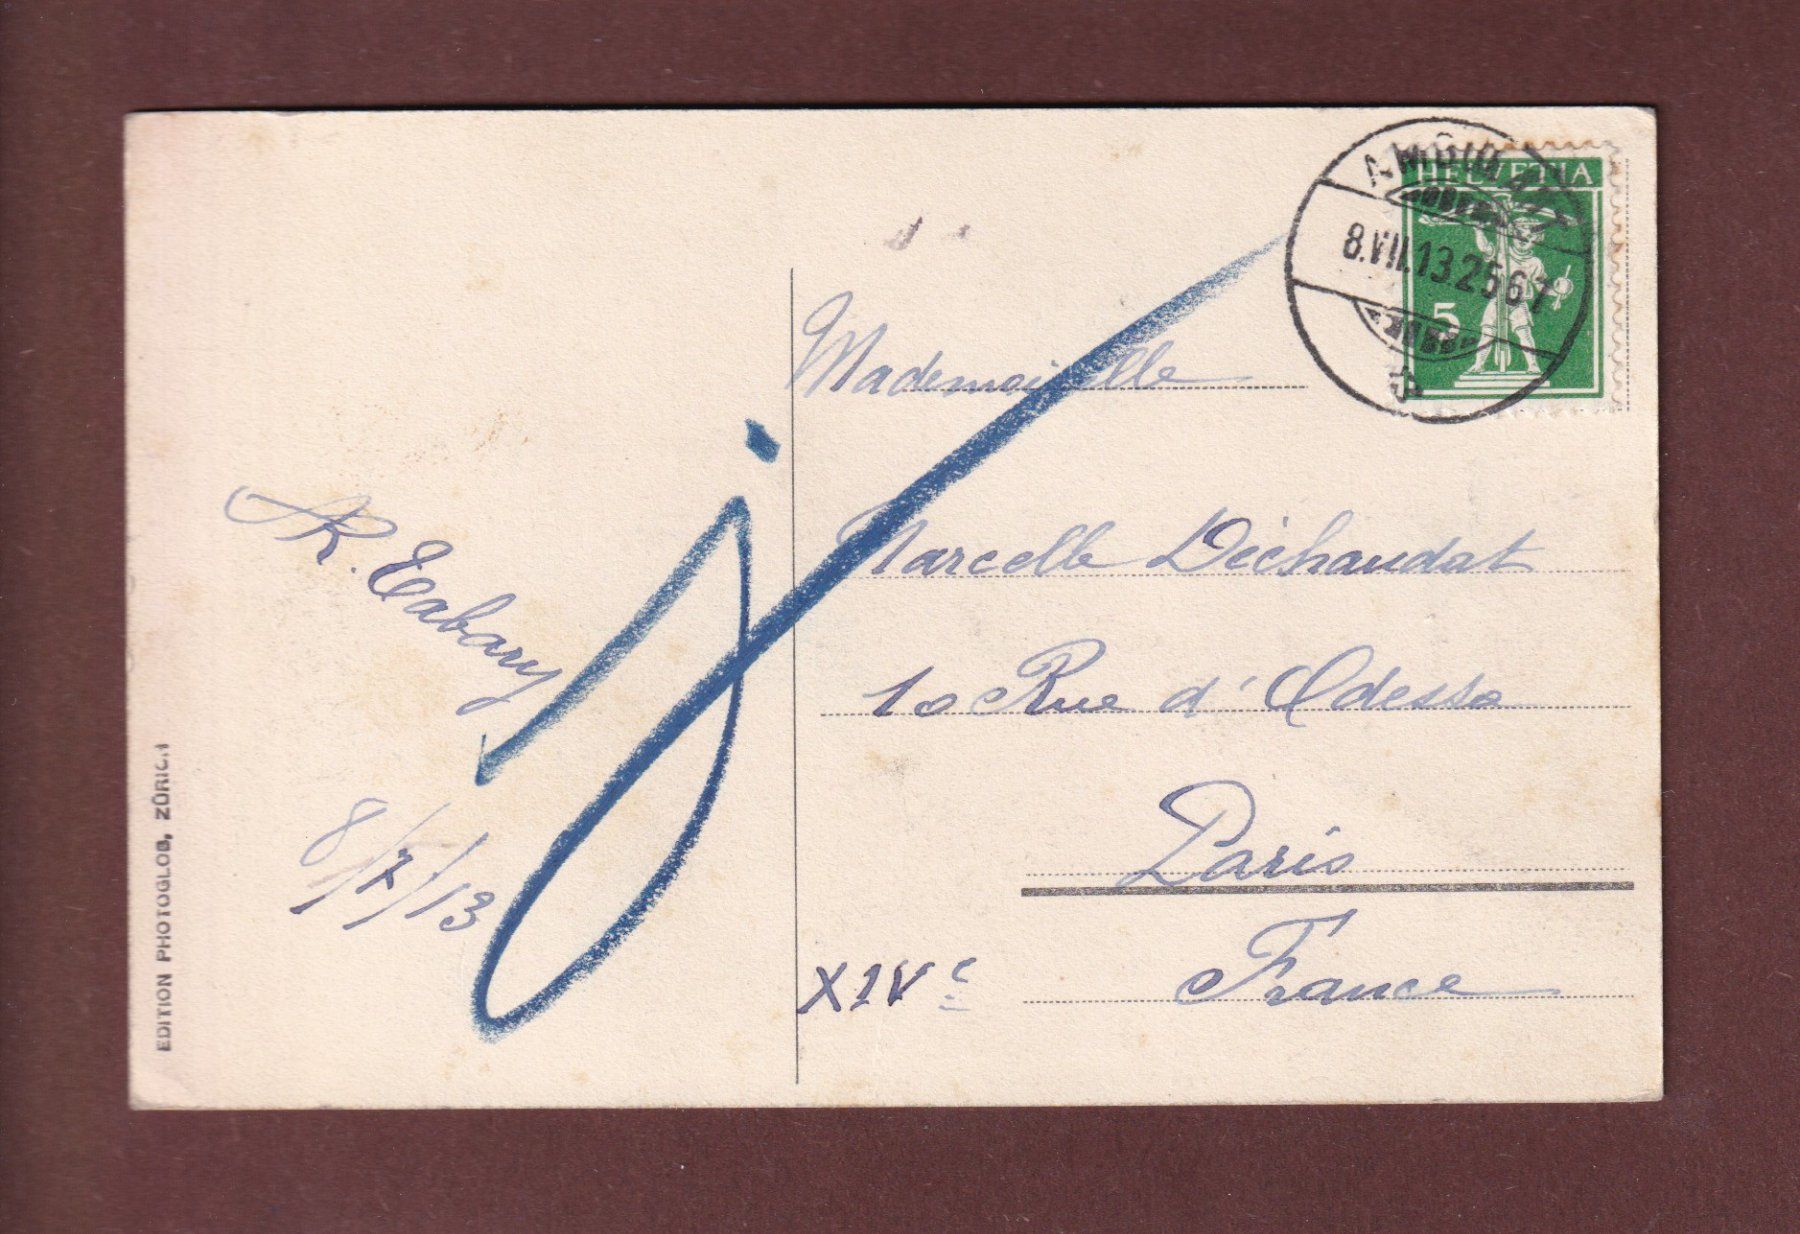 HELVETIA
5
8.VII.13.
Mademoiselle
Marcelle Déchaudat
10 Rue d'Odessa
Paris
XIVe France
R. Tabary
8/7/13
EDITION PHOTOGLOB, ZÜRICH